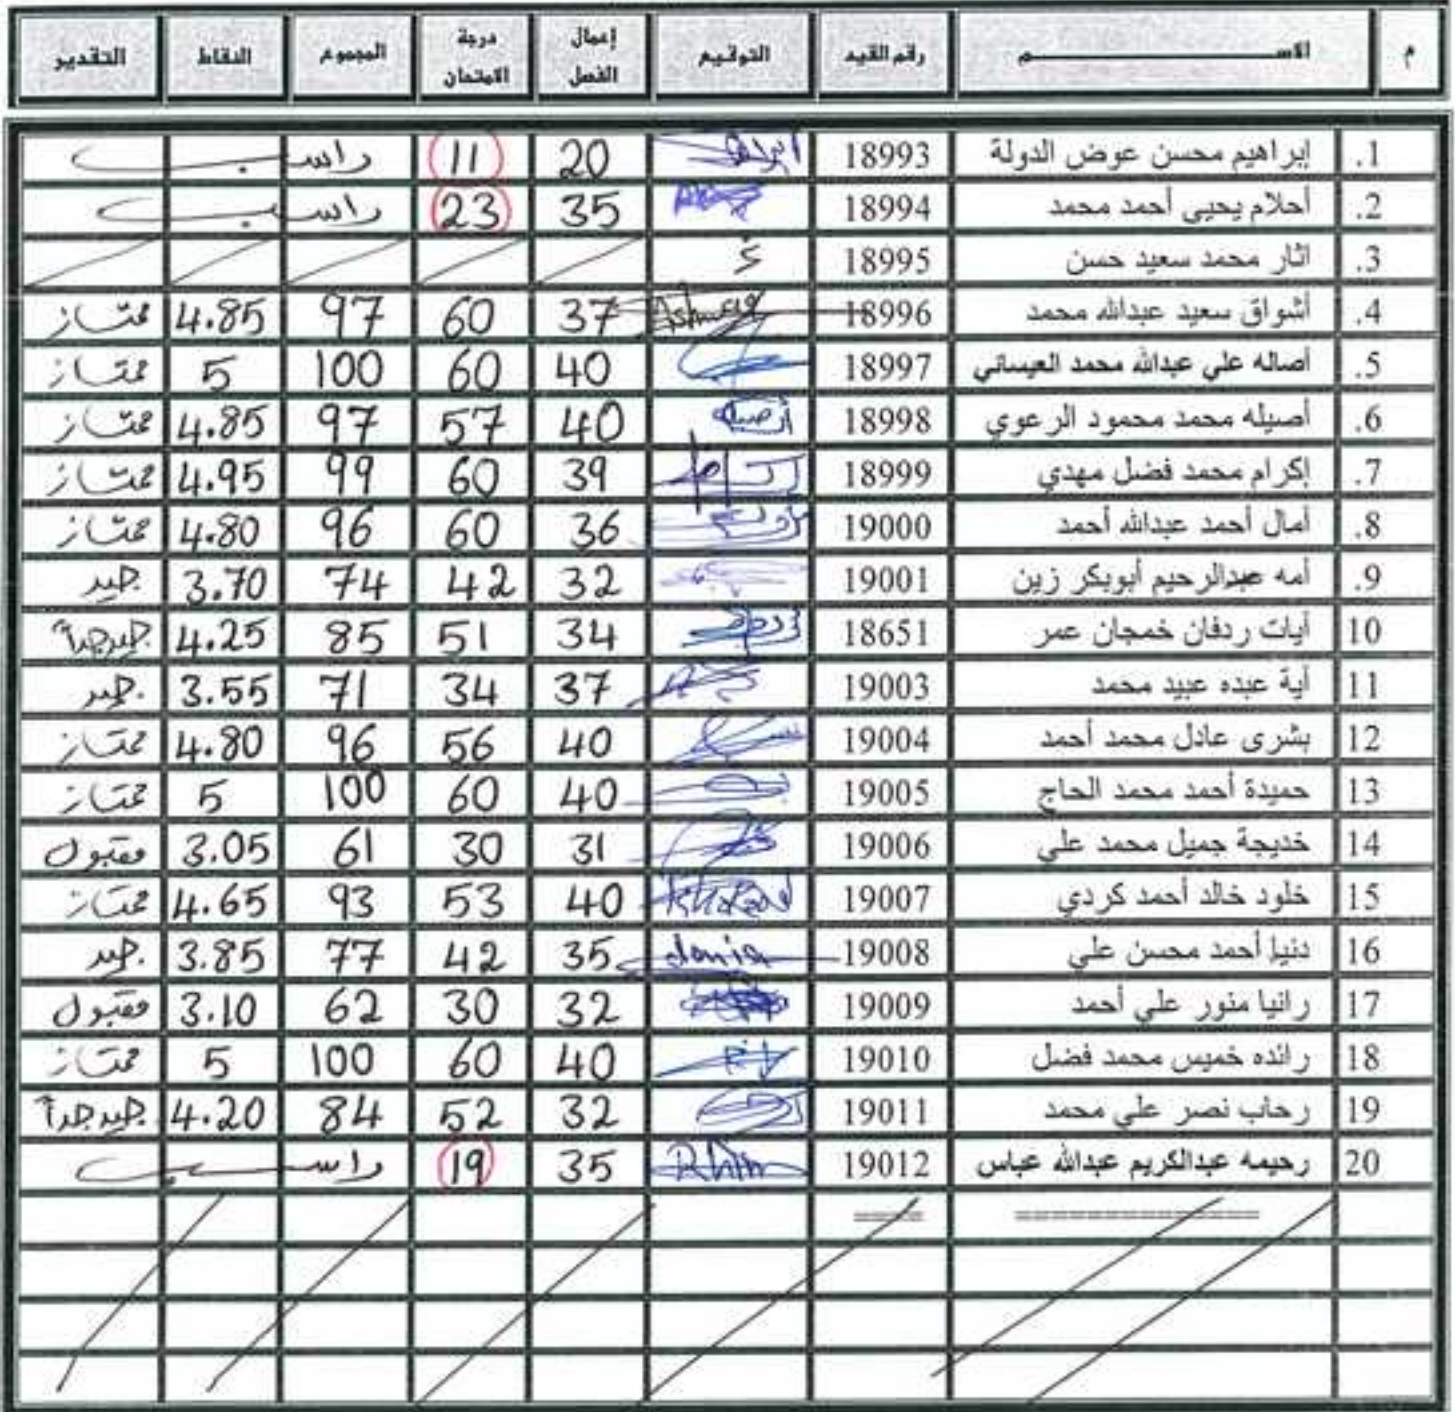 م الاســـــم رقم القيد التوقيع إعمال الفصل درجة الامتحان المجموع النقاط التقدير
1. إبراهيم محسن عوض الدولة 18993 20 11 راسب
2. أحلام يحيى أحمد محمد 18994 35 23 راسب
3. اثار محمد سعيد حسن 18995 غ
4. أشواق سعيد عبدالله محمد 18996 Ashwag 37 60 97 4.85 ممتاز
5. أصاله علي عبدالله محمد العيسائي 18997 40 60 100 5 ممتاز
6. أصيله محمد محمود الرعوي 18998 أصيله 40 57 97 4.85 ممتاز
7. إكرام محمد فضل مهدي 18999 39 60 99 4.95 ممتاز
8. أمال أحمد عبدالله أحمد 19000 36 60 96 4.80 ممتاز
9. أمه عبدالرحيم أبوبكر زين 19001 32 42 74 3.70 جيد
10 آيات ردفان خمجان عمر 18651 34 51 85 4.25 جيد جداً
11 آية عبده عبيد محمد 19003 37 34 71 3.55 جيد
12 بشرى عادل محمد أحمد 19004 40 56 96 4.80 ممتاز
13 حميدة أحمد محمد الحاج 19005 40 60 100 5 ممتاز
14 خديجة جميل محمد علي 19006 31 30 61 3.05 مقبول
15 خلود خالد أحمد كردي 19007 40 53 93 4.65 ممتاز
16 دنيا أحمد محسن علي 19008 donia 35 42 77 3.85 جيد
17 رانيا منور علي أحمد 19009 32 30 62 3.10 مقبول
18 رائده خميس محمد فضل 19010 40 60 100 5 ممتاز
19 رحاب نصر علي محمد 19011 32 52 84 4.20 جيد جداً
20 رحيمه عبدالكريم عبدالله عباس 19012 35 19 راسب